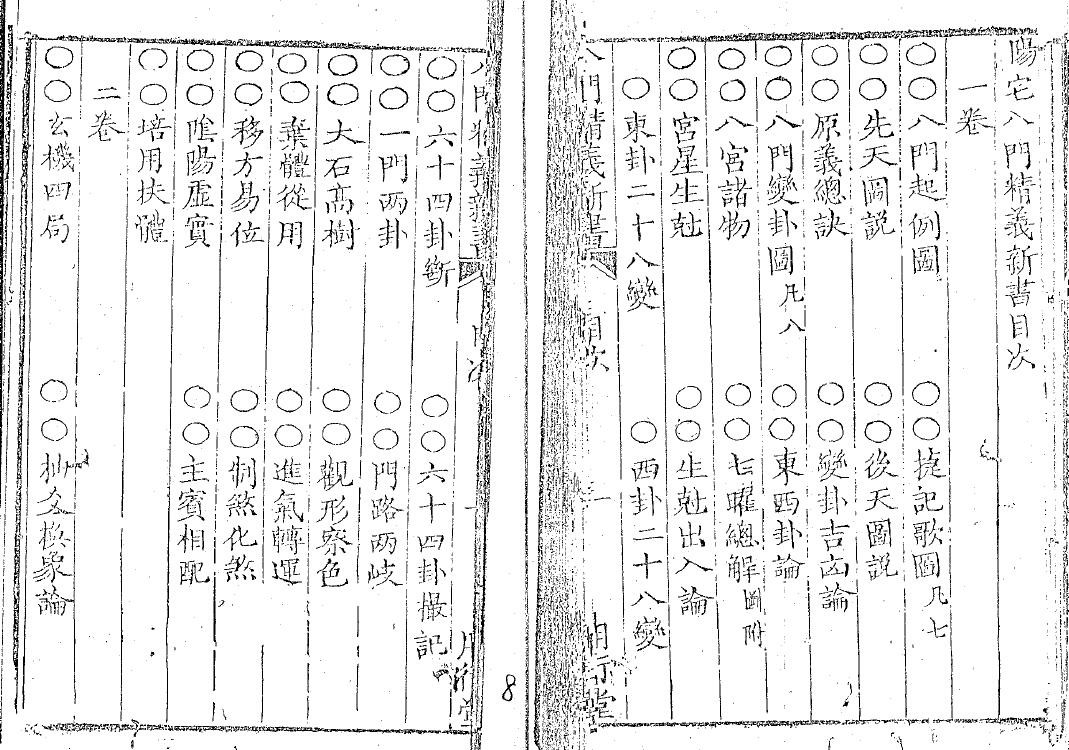 陽宅八門精義新書目次
一卷
〇〇八門起例圖 〇〇捷記歌圖凡七
〇〇先天圖説 〇〇後天圖説
〇〇原義總訣 〇〇變卦吉凶論
〇〇八門變卦圖凡八 〇〇東西卦論
〇〇八宮諸物 〇〇七曜總解圖附
〇〇宮星生尅 〇〇生尅出入論
〇東卦二十八變 〇西卦二十八變
八門精義新書 目次 一
8
八門精義新書 目次
〇〇六十四卦斷 〇〇六十四卦撮記
〇〇一門两卦 〇〇門路两岐
〇〇大石高樹 〇〇觀形察色
〇〇棄體從用 〇〇進氣轉運
〇〇移方易位 〇〇制煞化煞
〇〇陰陽虛實 〇〇主賓相配
〇〇培用扶體
二卷
〇〇玄機四局 〇〇抽爻換象論